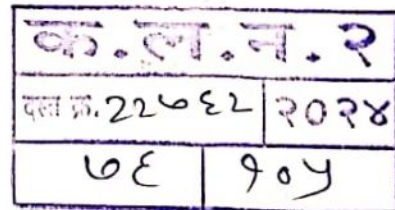 क.ल.न.२
दस्त क्र. 22७६२ २०२४
७६ १०५